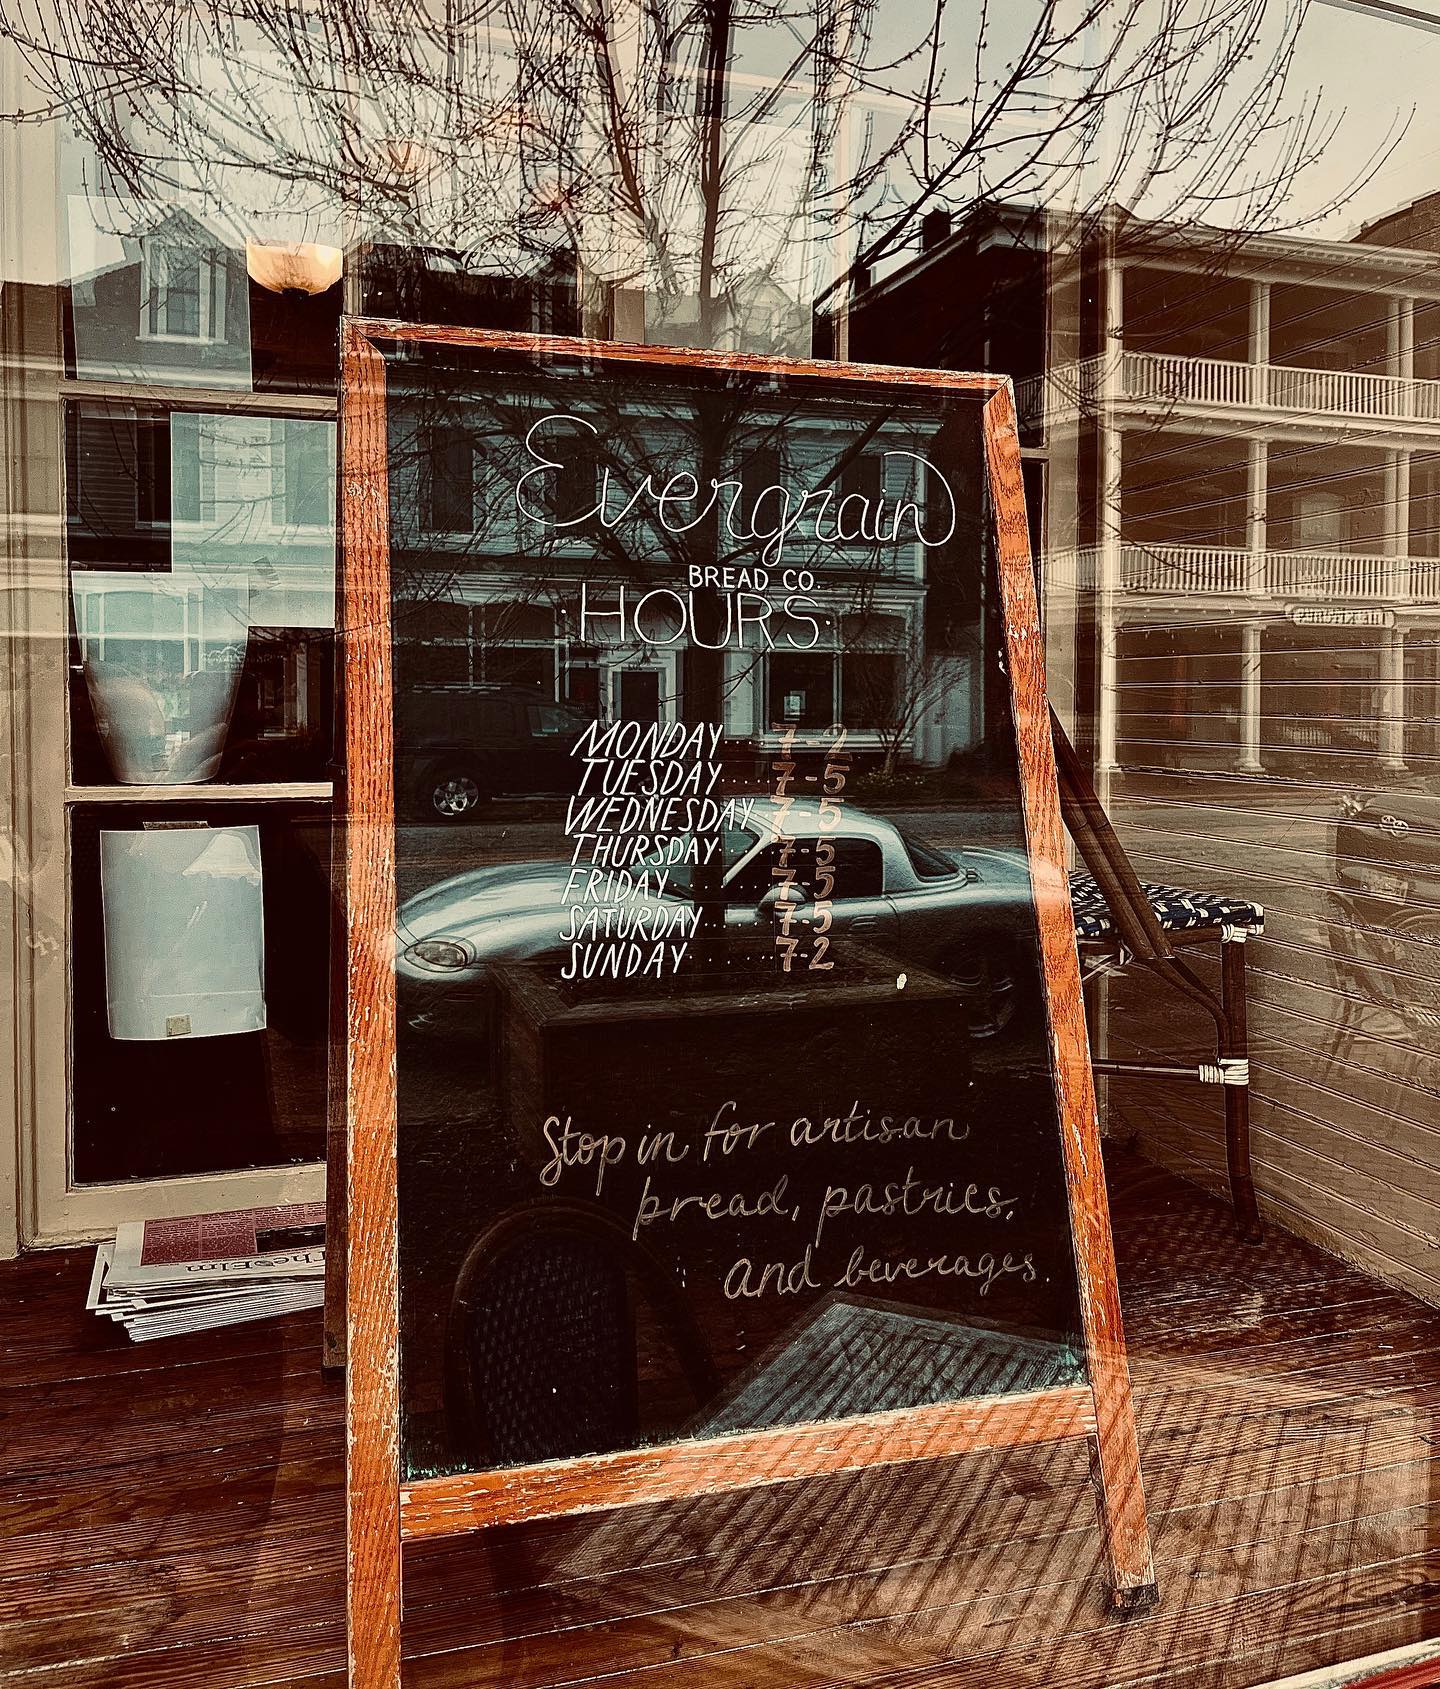 Evergrain
BREAD CO.
·HOURS·
MONDAY 7-2
TUESDAY 7-5
WEDNESDAY 7-5
THURSDAY 7-5
FRIDAY 7-5
SATURDAY 7-5
SUNDAY 7-2
Stop in for artisan
bread, pastries,
and beverages.
The Elm
THE KITCHEN